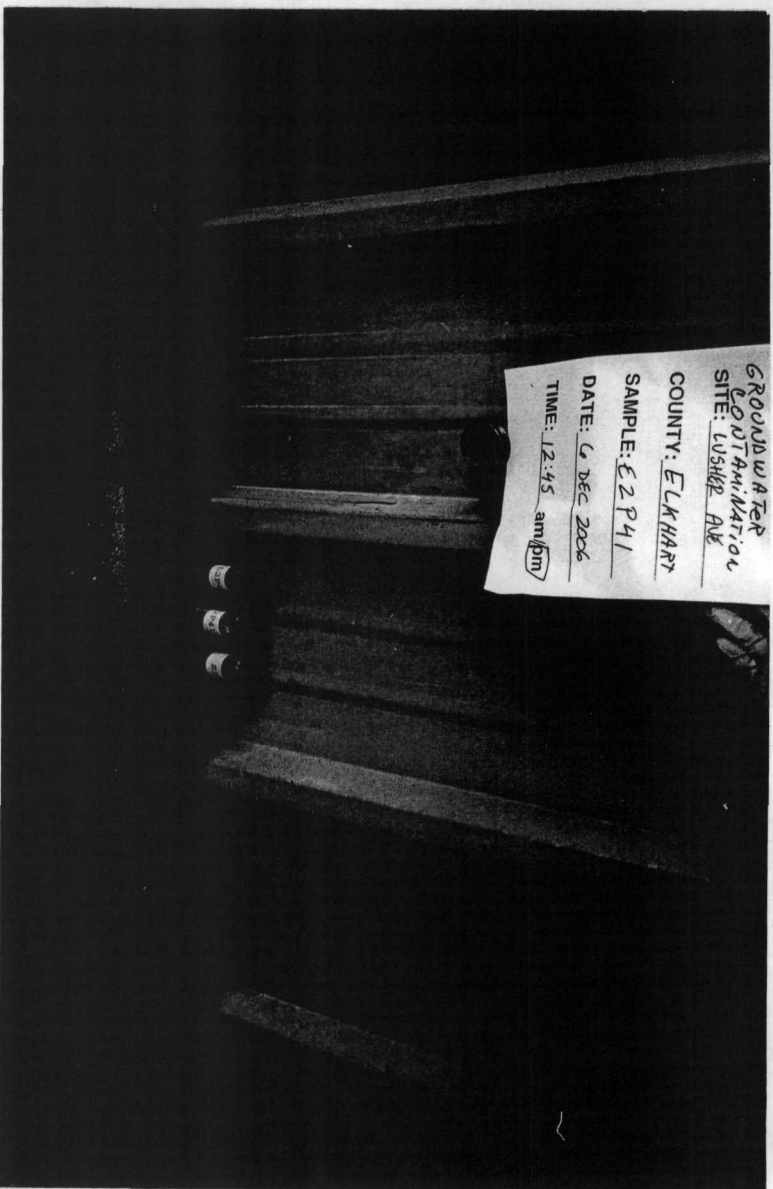 GROUNDWATER
CONTAMINATION
SITE: LUSHER AVE
COUNTY: ELKHART
SAMPLE: E2P41
DATE: 6 DEC 2006
TIME: 12:45 am/pm